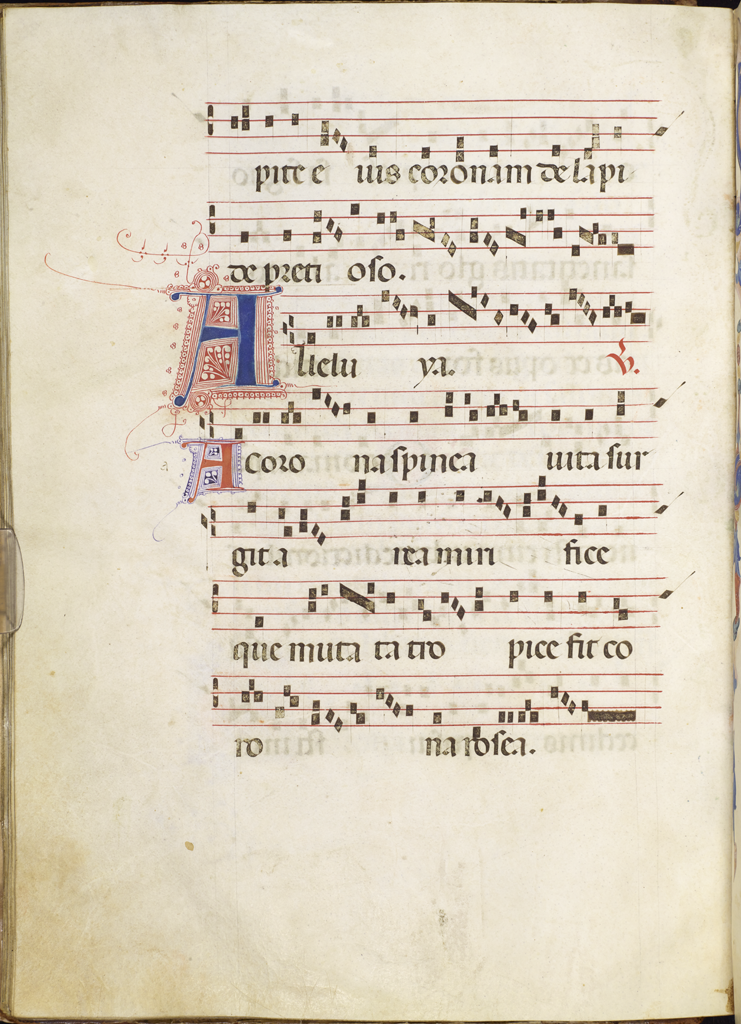 pite e ius coronam de lapi
de preti oso.
Allelu ya. V.
A coro na spinea uita sur
git a rea miri fice
que muta ta tro pice fit co
ro na rosea.